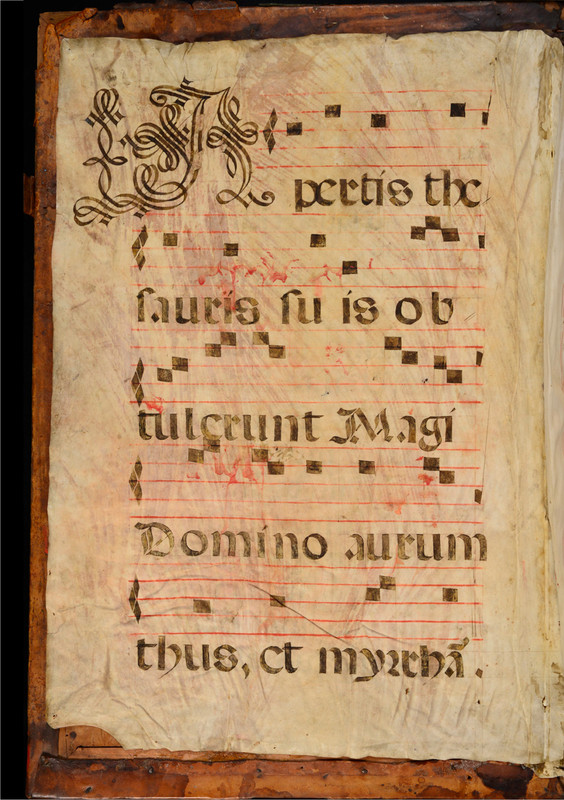 Apertis the
sauris su is ob
tulerunt Magi
Domino aurum
thus, et myrrhã.